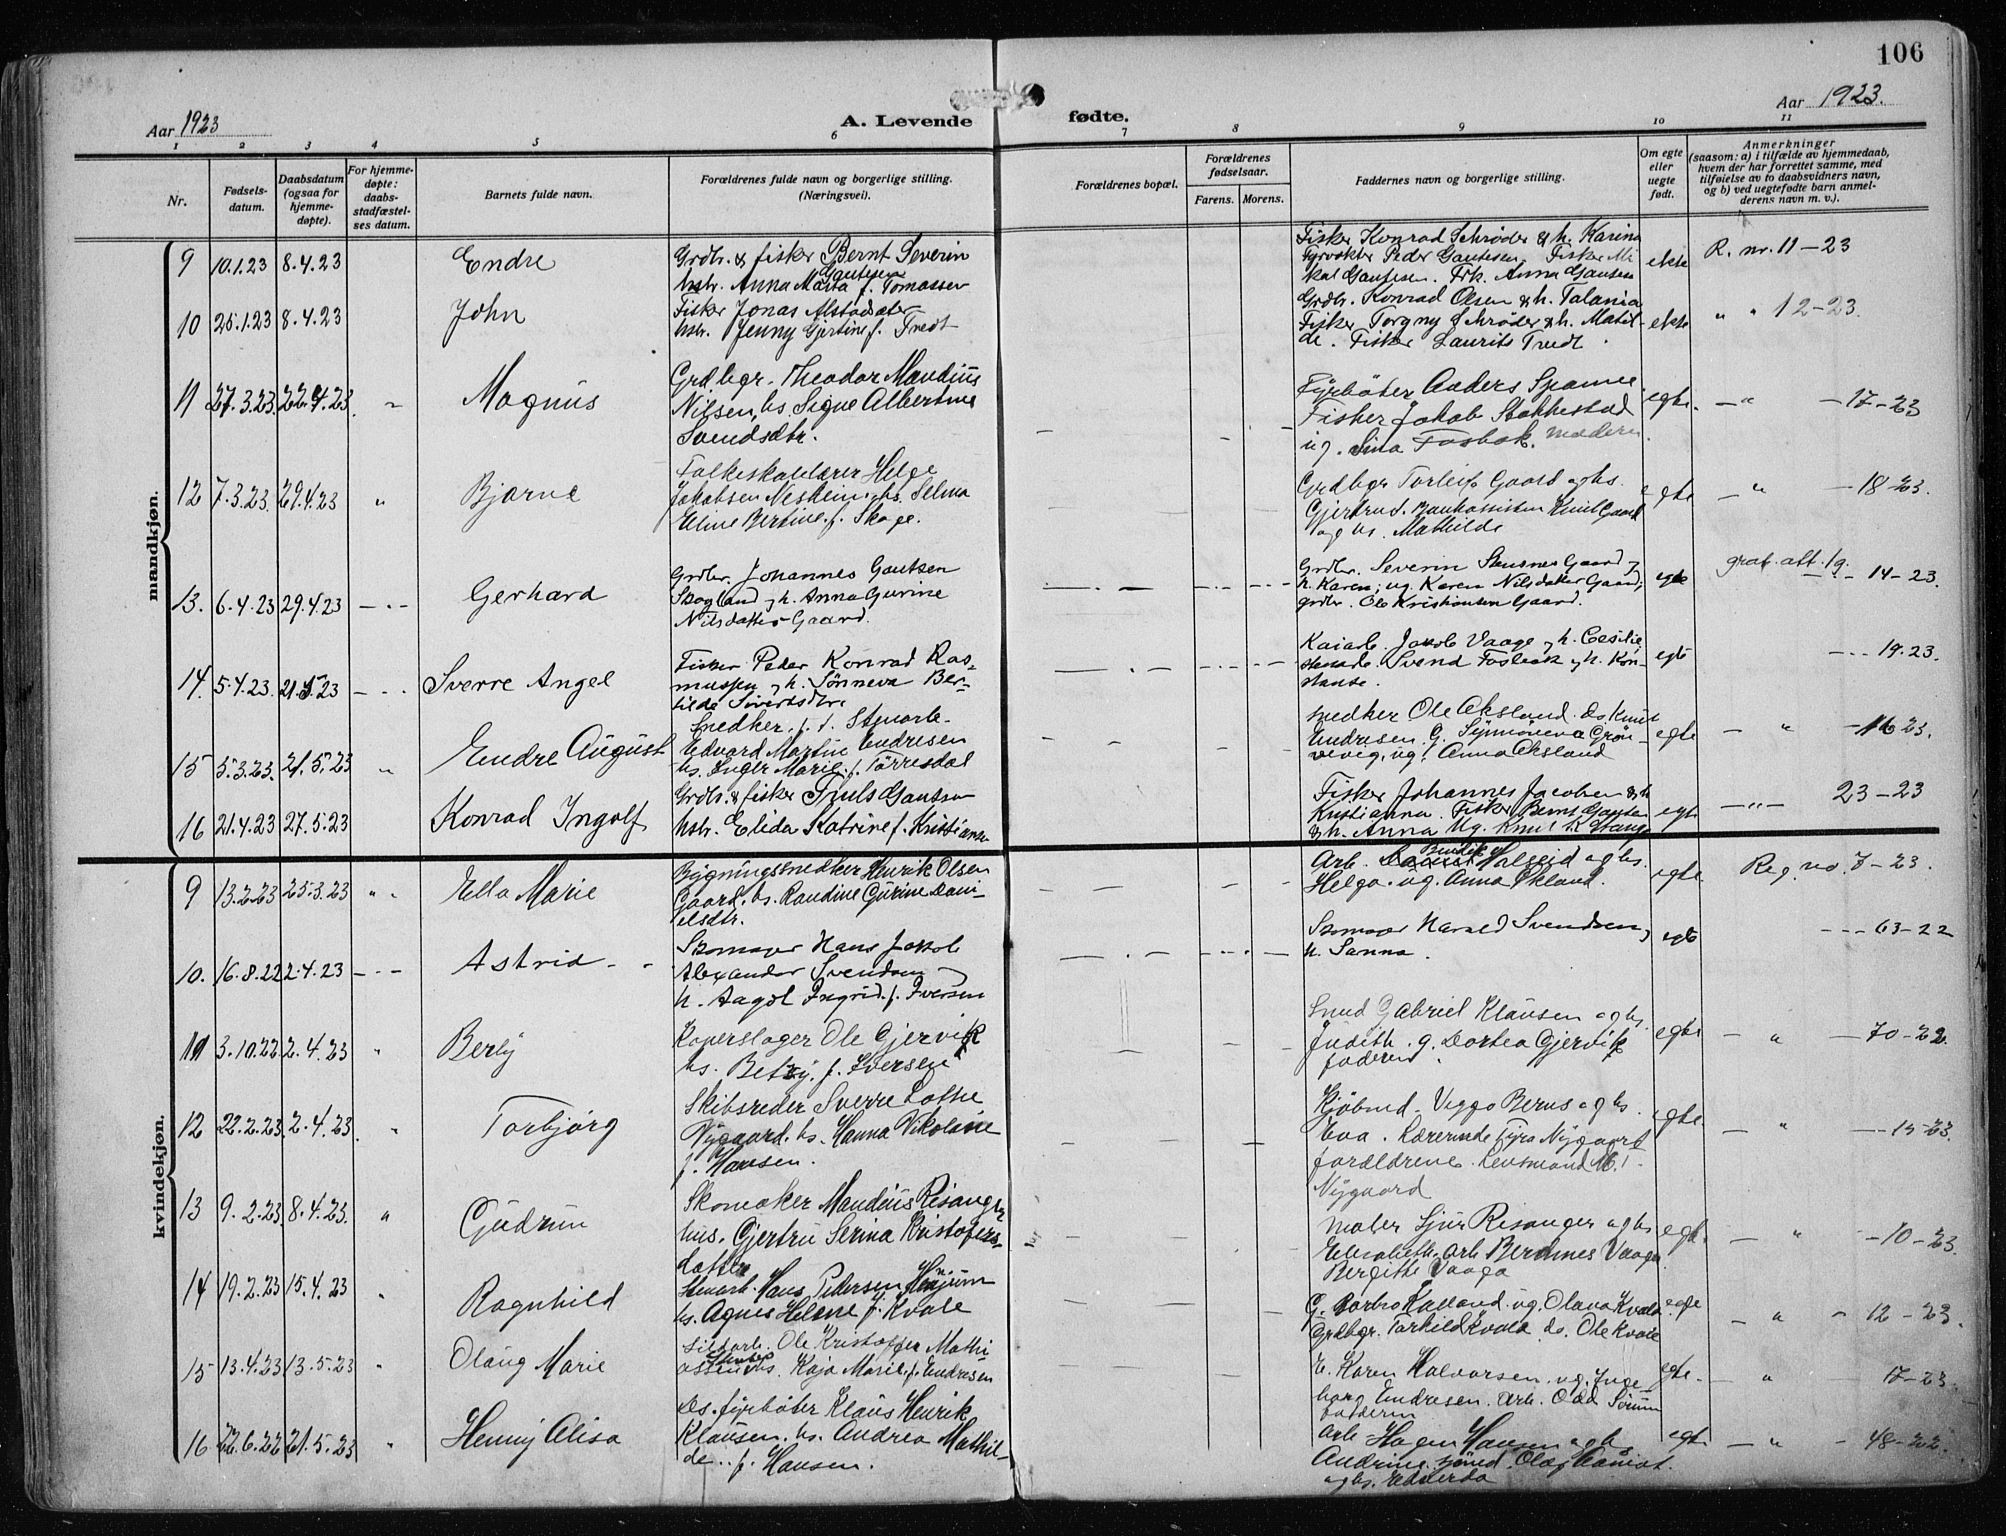 106
Aar 1923
A. Levende fødte.
Aar 1923.
1 2 3 4 5 6 7 8 9 10 11
Nr.
Fødsels-
datum.
Daabsdatum
(ogsaa for
hjemme-
døpte).
For hjemme-
døpte:
daabs-
stadfæstel-
ses datum.
Barnets fulde navn.
Forældrenes fulde navn og borgerlige stilling.
(Næringsvei).
Forældrenes bopæl.
Forældrenes
fødselsaar.
Farens. Morens.
Faddernes navn og borgerlige stilling.
Om egte
eller
uegte
født.
Anmerkninger
(saasom: a) i tilfælde av hjemmedaab,
hvem der har forrettet samme, med
tilføielse av to daabsvidners navn,
og b) ved uegtefødte barn anmel-
derens navn m. v.).
mandkjøn.
9 10.1.23 8.4.23 Endre
Grdbr. & fisker Bernt Severin
Gautesen
hstr. Anna Marta f. Tomassen
Fisker Konrad Schrøder & h. Karina
Fyrvokter Peder Gautesen. Fisker Mi
kal Gautesen. Frk. Anna Gautesen
ekte R. nr. 11-23
10 25.1.23 8.4.23 John
Fisker Jonas Alstadsæter
hstr. Jenny Gjertine f. Tredt
Grdbr. Konrad Olsen & h. Talania
Fisker Torgny Schrøder & h. Matil-
de. Fisker Laurits Tredt.
ekte " " 12-23.
11 27.3.23 22.4.23. " Magnus
Grdbgr. Theodor Mandius
Nilsen, hs. Signe Albertine
Svendsdtr.
Fyrbøter Anders Spanne
Fisker Jakob Stokkestad
ug. Sina Fosbak. moderen.
egte. - " - 17-23
12 7.3.23. 29.4.23 " Bjarne
Folkeskolelærer Helge
Jakobsen Neshein, hs. Selma
Eline Bertine f. Skoge.
Grdbgr Torleif Gaard og hs.
Gjertrud. Bankassistent Knut Gaard
og hs. Mathilde
egte - " - 18-23.
13. 6.4.23 29.4.23 - " - Gerhard
Grdbr. Johannes Gautsen
Skogland, h. Anna Gurine
Nilsdatter Gaard.
Grdbr. Severin Stensnes Gaard,
h. Karen; ug. Karen Nilsdatter Gaard;
grdbr. Ole Kristiansen Gaard.
egte - " - 14-23.
14. 5.4.23. 21.5.23 - " - Sverre Angel
Fisker Peder Konrad Ras-
mussen, h. Sønneva Ber-
tilde Sivertsdtr.
Kaiarb. Jakob Vaage, h. Cesilie;
Svend Fosbak, h. Kon-
stanse.
egte - " - 19.23.
15 5.3.23. 21.5.23 " Endre August
Snedker, f. t. Stenarb.
Edvard Martin Endresen
hs. Inger Marie f. Tørresdal
snedker Ole Eksland. ds Knut
Endresen. G. Synnøieva Grøn-
vevig, ug. Anna Eksland
egte - " - 16-23.
16 21.4.23 27.5.23 Konrad Ingolf
Grdbr. & fisker Truls Gautsen
hstr. Elida Katrine f. Kristiansen
Fisker Johannes Jacobsen & h
Kristianna. Fisker Bernt Gautsen
& h. Anna Ug. Knut K Stange
egte - " - 23-23
kvindekjøn.
9 13.2.23 25.3.23 " " Ella Marie
Bygningssnedker Henrik Olsen
Gaard, hs. Randine Gurine Dani-
elsdtr.
Arb. Halseid og hs.
Helga. ug. Anna Ekland.
egte Reg. no. 7-23.
10. 16.8.22 2.4.23 - " - Astrid
Skomager Hans Jakob
Alexander Svendsen,
h. Aagot Ingrid f. Iversen
Skomager Harald Svendsen,
h. Sanna.
egte - " - 63-22
11 3.10.22 2.4.23 " Berly
Koperslager Ole Gjervik
hs. Betzy. f. Iversen
Smed Gabriel Klausen og hs.
Judith. g. Dortea Gjervik
faderen.
egte - " - 70-22.
12 22.2.23. 2.4.23. " Torbjørg
Skibsreder Sverre Lothe
Nygaard. hs. Hanna Vikoline
f. Hansen.
Kjøbmd. Viggo Berns og hs.
Eva. Lærerinde Fyra Nygaard
forældrene. Lensmand M. I.
Nygaard
egte - " - 15-23.
13 9.2.23 8.4.23. " Gudrun
Skomaker Mandius Risanger,
hus. Gjertru Serina Kristofers-
datter
maler Sjur Risanger og hs
Elisabeth. arb. Berdines Vaage
Bergithe Vaage
egte - " - 10-23.
14 19.2.23 15.4.23 " Ragnhild
Stenarb. Hans Pedersen Hinjum
hs. Agnes Helene f. Kvale
G. Barbro Kalland. ug. Olava Kvale
Grdbgr. Torkild Kvale. ds. Ole Kvale
egte " - 12-23.
15 13.4.23 13.5.23 " Olaug Marie
Sildearb. Ole Kristoffer Mathi-
assen hs. Kaja Marie f. Endresen
E. Karen Halvorsen. ug. Inge-
borg Endresen. Arb. Odd Sørum
faderen
egte. - " - 17-23.
16 22.6.22 21.5.23 " Henny Alisa
Ds. fyrbøter Klaus Henrik
Klausen. hs. Andrea Mathil-
de. f. Hansen.
Arb. Hagen Hansen og hs.
Andrine. smed. Olaf
og hs. Edvarda
egte - " - 48-22.